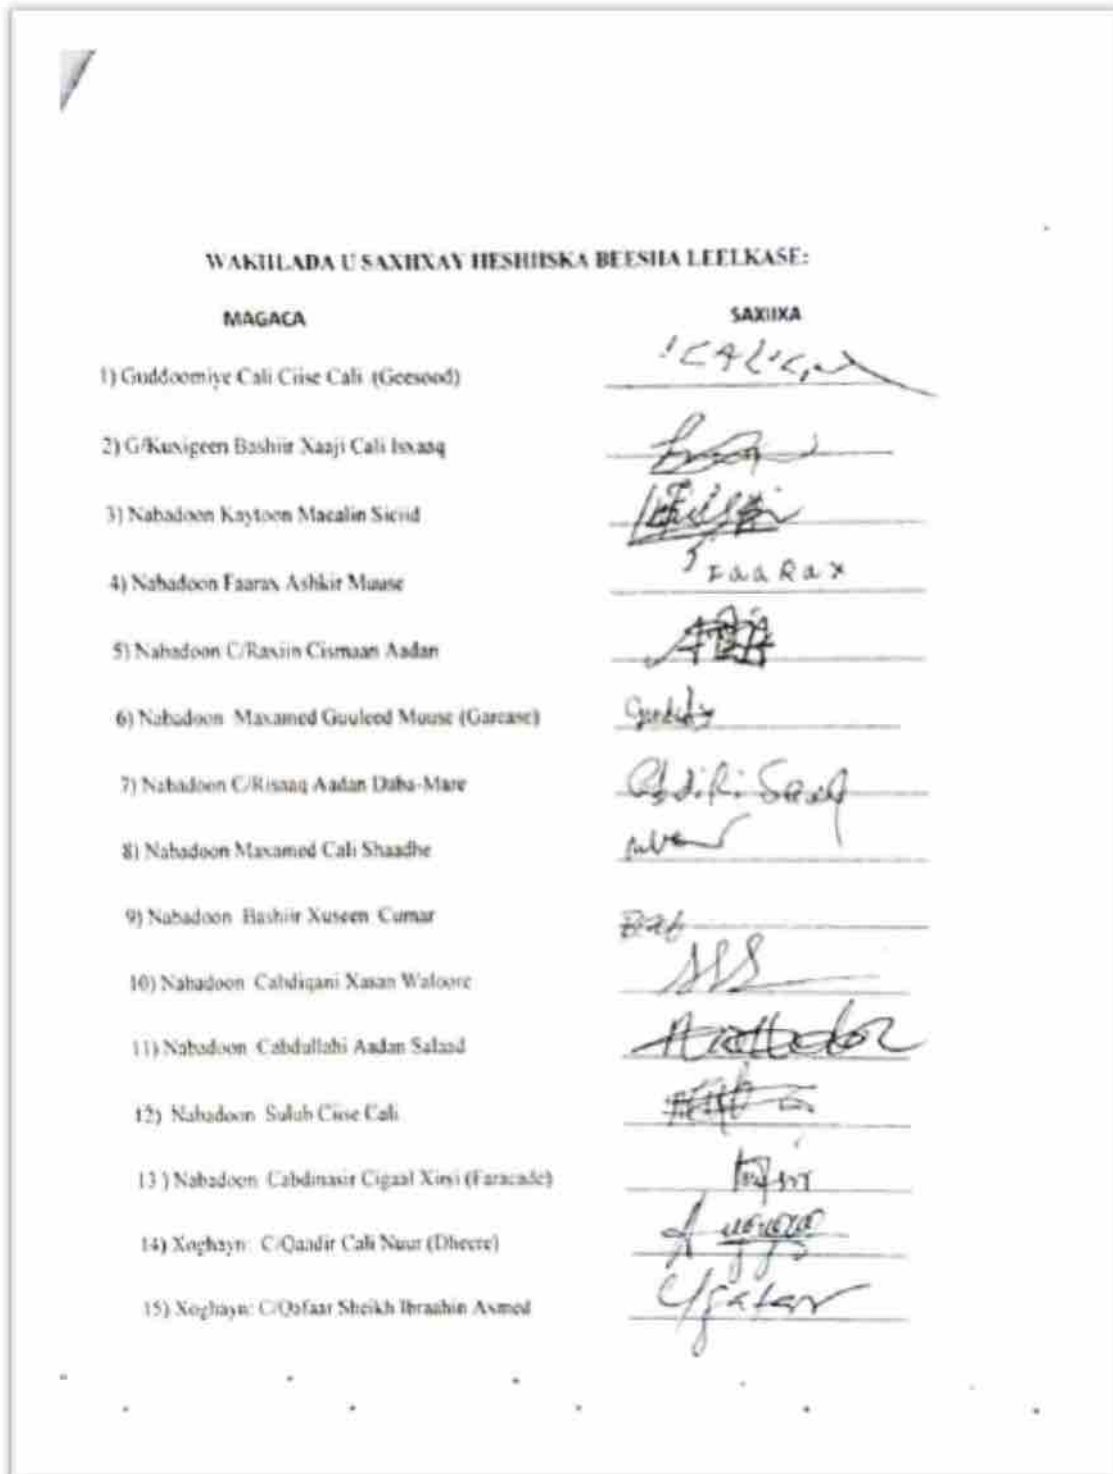 WAKIILADA U SAXIIXAY HESHIISKA BEESHA LEELKASE:
MAGACA SAXIIXA
1) Guddoomiye Cali Ciise Cali (Geesood)
2) G/Kuxigeen Bashiir Xaaji Cali Isxaaq
3) Nabadoon Kaytoon Macalin Siciid
4) Nabadoon Faarax Ashkir Muuse Faarax
5) Nabadoon C/Raxiin Cismaan Aadan
6) Nabadoon Maxamed Guuleed Muuse (Garcase)
7) Nabadoon C/Risaaq Aadan Daba-Mare
8) Nabadoon Maxamed Cali Shaadhe
9) Nabadoon Bashiir Xuseen Cumar
10) Nabadoon Cabdiqani Xasan Waloore
11) Nabadoon Cabdullahi Aadan Salaad
12) Nabadoon Sulub Ciise Cali
13 ) Nabadoon Cabdinasir Cigaal Xirsi (Faracade)
14) Xoghayn: C/Qaadir Cali Nuur (Dheere)
15) Xoghayn: C/Qafaar Sheikh Ibraahin Axmed